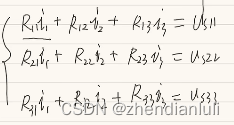 R₁₁i₁ + R₁₂i₂ + R₁₃i₃ = Us₁₁
R₂₁i₁ + R₂₂i₂ + R₂₃i₃ = us₂₂
R₃₁i₁ + R₃₂i₂ + R₃₃i₃ = us₃₃
CSDN @zhendianluli